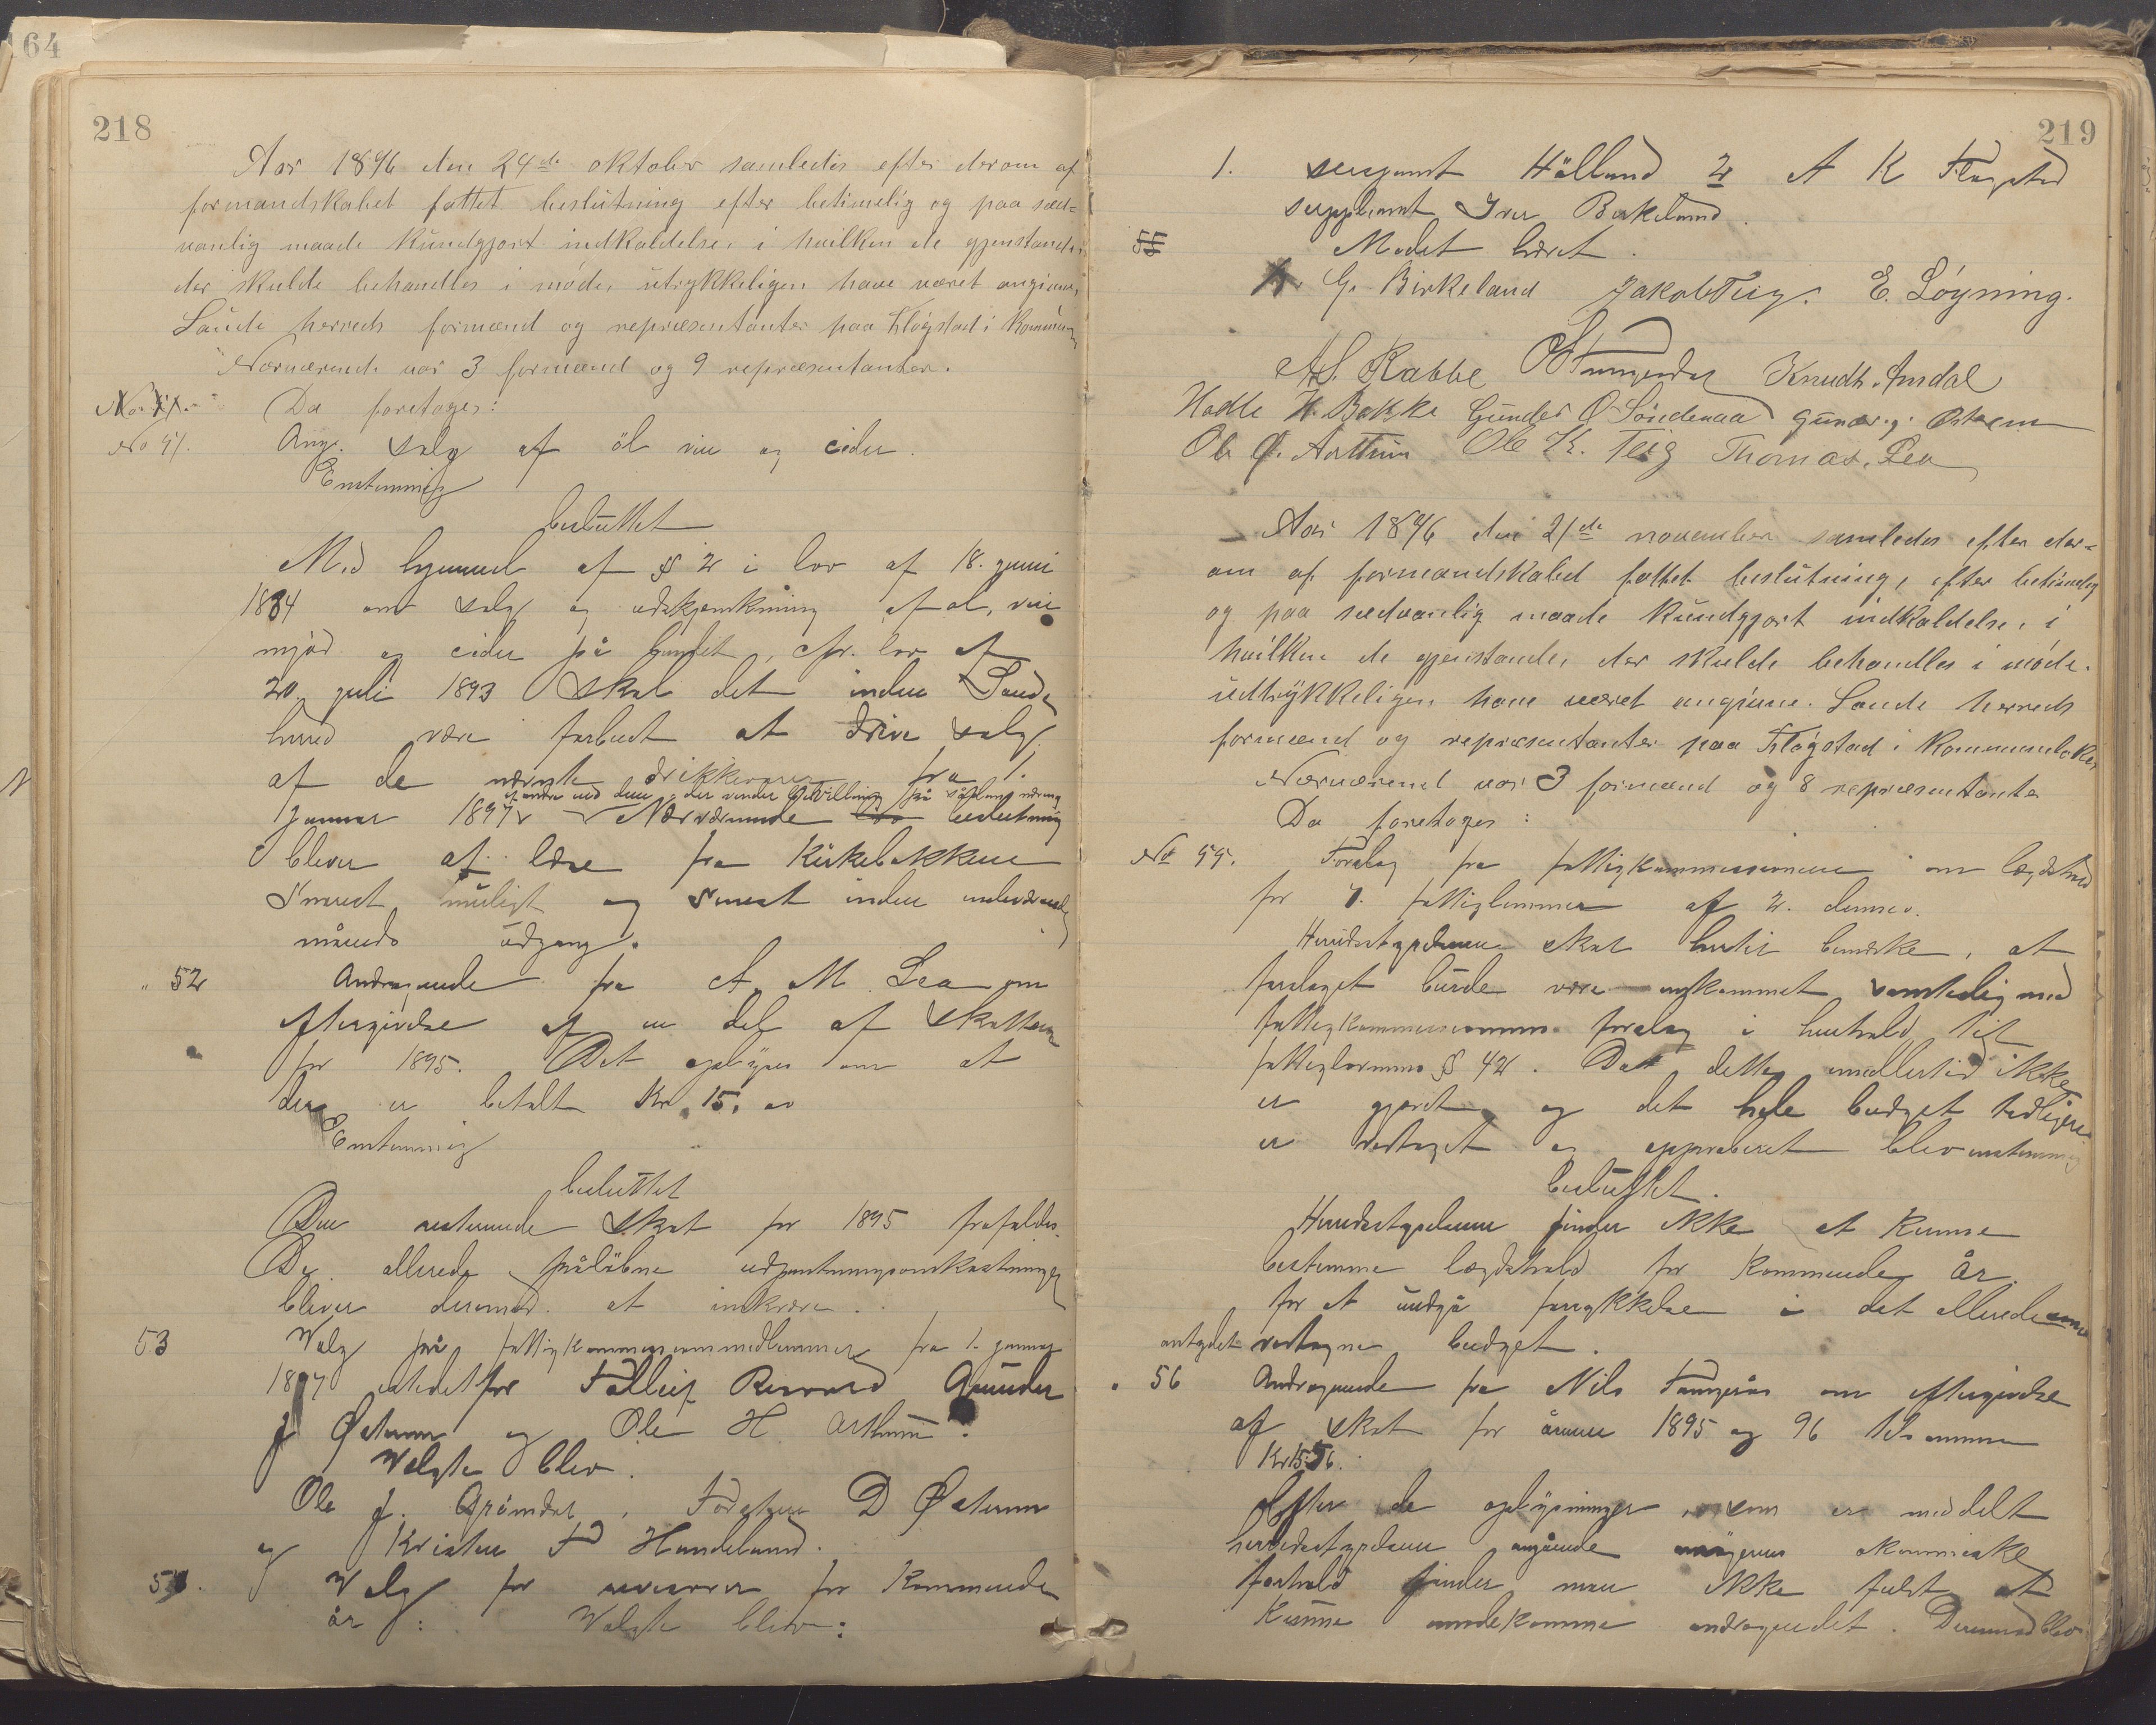 164
218
Aar 1896 den 24de oktober samledes efter derom af
formandskabet fattet beslutning efter betimelig og paa sæd-
vanlig maade kundgjort indkaldelse, i hvilken de gjenstande,
der skulde behandles i møde, utrykkeligen have været angivne,
Saude herreds formænd og repræsentanter paa Fløgstad i Kommune
Nærværende var 3 formænd og 9 repræsentanter.
Da foretoges:
No 51. Ang. salg af öl vin og cider.
Enstemmig
besluttet
Med hjemmel af § 2 i lov af 18. juni
1884 om salg og udskjænkning af öl, vin
mjød og cider på landet, cfr. lov af
20. juli 1893 skal det inden Saude
herred være forbudt at drive salg
af de nævnte drikkevarer fra 1.
af andre end dem, der vinder bevilling på sådan næring
Januar 1897. Nærværende beslutning
bliver at læse fra Kirkebakken
snarest muligt og senest inden indeværende
måneds udgang.
" 52 Andragende fra A. M. Lea om
eftergivelse af en del af skatten
for 1895. Det oplyses om at
der er betalt Kr. 15,00
Enstemmig
besluttet
Den resterende skat for 1895 frafaldes.
De allerede påløbne udpantningsomkostninger
bliver derimod at inkræve.
53 Valg på fattigkommissionsmedlemmer fra 1. januar
1897 istedetfor Tolleif Risvold Gunder
J Østerem og Ole H Arthun.
Valgte blev.
Ole J. Grøndal, Torsten D Østerem
og Kristen T Handeland.
54. Valg for revisorer for Kommende
år: Valgte blev:
219
1. sergeant Hålland 2 A K Fløgstad
suppleant Iver Birkeland.
55 Mødet hævet.
G. Birkeland Jakob Teig. E. Løyning.
A S. Rabbe O Tungesdal Knudh. Amdal
Hadle H. Bakke Gunder O Söndenaa Gunder. j. Østrem
Ole Ø. Aarthun Ole K. Teig Thomas. Lea
Aar 1896 den 21de november samledes efter der-
om af formandskabet fattet beslutning, efter betimelig
og paa sædvanlig maade kundgjort indkaldelse, i
hvilken de gjenstande, der skulde behandles i møde.
udtrykkeligen have været angivne. Saude herreds
formænd og repræsentanter paa Fløgstad i Kommunelokale
Nærværend var 3 formænd og 8 repræsentanter
Da foretoges:
No 55. Forslag fra fattigkommissionen om lægdehold
for 7. fattiglemmer af 2. dennes.
Herredsstyrelsen skal hertil bemærke, at
forslaget burde være indkommet samtidig med
fattigkommissionens forslag i henhold til
fattiglovens § 42. Da dette imidlertid ikke
er gjort og det hele budget tidligere
er vedtaget og approberet blev enstemmig
besluttet.
Herredsstyrelsen finder ikke at kunne
bestemme lægdehold for Kommende år.
for at undgå forrykkelse i det allerede
antydet vedtagne budget.
" 56 Andragende fra Nils Tangerås om eftergivelse
af skat for årene 1895 og 96 tilsammen
Kr 15.56.
Efter de oplysninger, som er meddelt
herredsstyrelsen angående økonomiske
forhold finder man ikke fuldt at
kunne imødekomme andragendet. Derimod blev